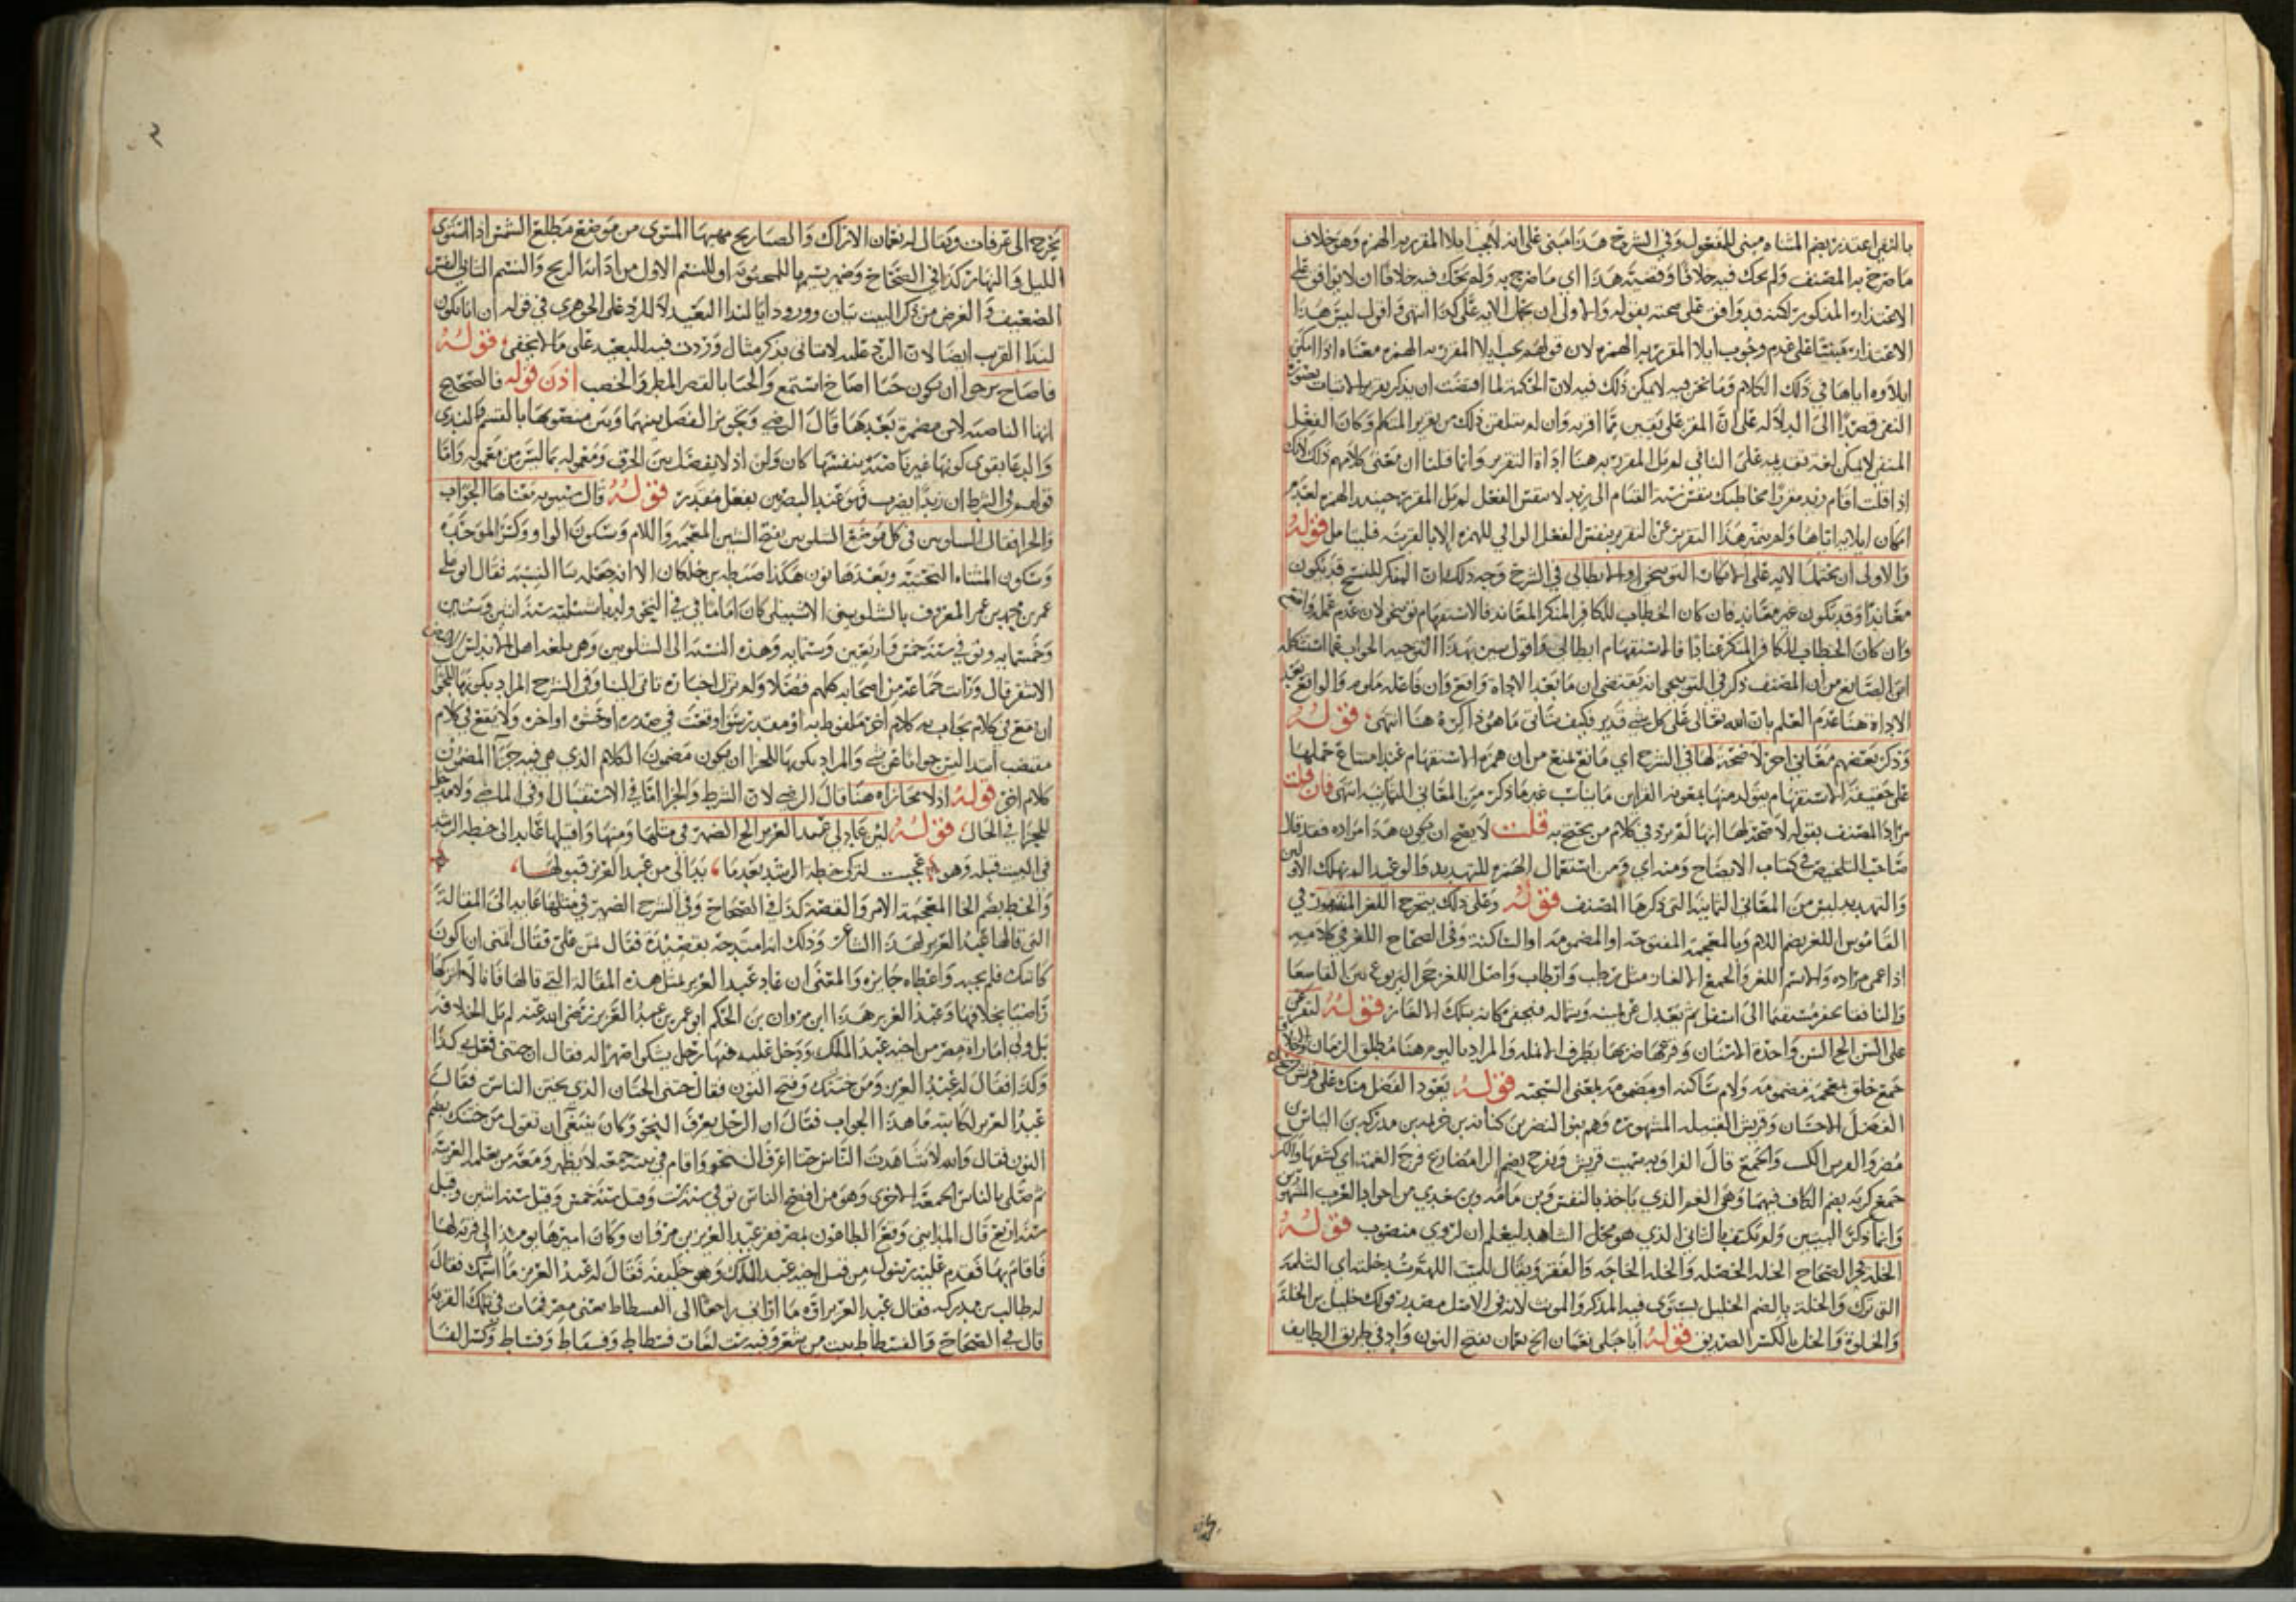 بالنفي اعتذر بضم المشاه مبنى للمفعول وفي الشرح هذا مبنى على انه لا يجب ايلاا المقرر به الهمزه وهو خلاف
ما صرح به المصنف ولم يحك فيه خلافا وقضية هذا اي ما صرح به ولم يحك فيه خلافا ان لا يوافق على
الاعتذار المذكور لكنه قد وافق على صحته بقوله والاولى ان تحمل الايه على كذا انتهى واقول ليس هذا
الاعتذار مبنيا على عدم وجوب ايلاا المقرر به الهمزه لان قولهم يجب ايلاا المقرر به الهمزه معناه اذا امكن
ايلاوه اياها في ذلك الكلام وما نحن فيه لا يمكن ذلك فيه لان الحكمة لما اقتضت ان يذكر تقرير الاثبات بصورة
النفي قصدا الى الدلاله على ان المقر على يقين مما اقر به وان لم يتلقن ذلك من تقرير المتكلم وكان الفعل
المنفي لا يمكن لغة تقديمه على النافي لم يل المقرر به هنا اداة التقرير وانما قلنا ان معنى كلامهم ذلك لانك
اذا قلت اقام زيد مقررا مخاطبك بنفس نسبة القيام الى زيد لا بنفس الفعل لم يل المقرر حينئذ الهمزه لعدم
امكان ايلايه اياها ولم يتميز هذا التقرير عن التقرير بنفس الفعل الوالي للهمزه الا بالقرينه فليتامل قوله
والاولى ان تحمل الايه على الانكار التوبيخى او الابطالى في الشرح وجه ذلك ان المنكر للنسخ قد يكون
معاندا وقد يكون غير معاند فان كان الخطاب للكافر المنكر المعاند فالاستفهام توبيخى لان عدم عمله واقع
وان كان الخطاب للكافر المنكر عنادا فالاستفهام ابطالى واقول يتبين بهذا التوجيه الجواب عما استشكله
ابن الصايغ من ان المصنف ذكر في التوبيخى انه يقتضى ان ما بعد الاداة واقع وان فاعله ملوم والواقع بعد
الاداة هنا عدم العلم بان الله تعالى على كل شى قدير فكيف يتاتى ما هو ذاكره هنا انتهى قوله
وذكر بعضهم معاني اخر لا صحة لها في الشرح اي مانع يمنع من ان همزة الاستفهام عند امتناع حملها
على حقيقة الاستفهام يتولد منها بمعونة القراين ما يناسب غير ما ذكر من المعاني الثمانيه انتهى فان قلت
مراد المصنف بقوله لا صحة لها انها لم ترد في كلام من يحتج به قلت لا يصح ان يكون هذا مراده فقد قال
صاحب التلخيص في كتاب الايضاح ومنه اي ومن استعمال الهمزه للتهديد والوعيد الم نهلك الاولين
والتهديد ليس من المعاني الثمانية التي ذكرها المصنف قوله وعلى ذلك يتخرج اللغز المشهور في
القاموس اللغز بضم اللام وبالمعجمة المفتوحة او المضمومه او الساكنة وفي الصحاح اللغز في كلامه
اذا عمى مراده والاسم اللغز والجمع الالغاز مثل رطب وارطاب واصل اللغز جحر اليربوع بين القاصعا
والنافقا يحفر مستقيما الى اسفل ثم يعدل عن يمينه وشماله فيخفى مكانه بتلك الالغاز قوله لتقرعن
على السن الح السن واحدة الاسنان وقرعها ضربها بطرف الانمله والمراد باليوم هنا مطلق الزمان والاخلاق
جمع خلق بمعجمة مضمومه ولام ساكنه او مضمومه بمعنى السجية قوله يعود الفضل منك على قريش
الفضل الاحسان وقريش القبيله المشهوره وهم بنو النضر بن كنانه بن خزيمه بن مدركه بن الياس بن
مضر والقرس الكسب والجمع قال الفرا وبه سميت قريش ويفرج بضم الرا مضارع فرج الغمة اي كشفها والكرب
جمع كربه بضم الكاف فيهما وهى الغم الذي ياخذ بالنفس وبن مامه وبن سعدى من اجواد العرب المشهورين
وانما ذكر البيتين ولم يكتف بالثاني الذي هو محل الشاهد ليعلم ان الروي منصوب قوله
الخلة في الصحاح الخله الخصله والخله الحاجه والفقر ويقال للميت اللهم سد خلته اي الثلمة
التي ترك والخلة بالضم الخليل يستوى فيه المذكر والمونث لانه في الاصل مصدر قولك خليل بين الخلة
والخلوة والخل بالكسر الصديق قوله ايا جبلى نعمان الح نعمان بفتح النون واد في طريق الطايف
يخرج الى عرفات ويقال له نعمان الاراك والصبا ريح مهبها المستوى من موضع مطلع الشمس اذا استوى
الليل والنهار كذا في الصحاح وضمير نسيمها للمحبوبة او للنسيم الاول من
الضعيف والغرض من ذكر البيت بيان ورود ايا لندا البعيد لا للرد على الجوهرى في قوله ان ايا تكون
لندا القريب ايضا لان الرد عليه لا يتاتى بذكر مثال وردت فيه للبعيد على ما لا يخفى قوله
فاصاح يرجوا ان يكون حيا اصاخ استمع والحيا بالقصر المطر والخصب اذن قوله فالصحيح
انها الناصبة لا ان مضمرة بعدها قال الرضى وتجويز الفصل بينها وبين منصوبها بالقسم والندا
والدعا يقوى كونها غير ناصبة بنفسها كان ولن اذ لا يفصل بين الحرف ومعموله بما ليس من معموله واما
قولهم في الشرط ان زيدا يضرب فهو عند البصريين بفعل مقدر قوله قال سيبويه معناها الجواب
والجزا فقال الشلوبين في كل موضع الشلوبين بفتح الشين المعجمه واللام وسكون الواو وكسر الموحده
وسكون المثناه التحتية وبعدها نون هكذا ضبطه بن خلكان الا انه جعله بيا النسبة فقال ابو على
عمر بن محمد بن عمر المعروف بالشلوبينى الاشبيلى كان اماما في النحو ولد باشبيلية سنة اثنين وستين
وخمسمايه وتوفي سنة خمس واربعين وستمايه وهذه النسبه الى الشلوبين وهو بلغه اهل الاندلس الابيض
الاشقر قال ورايت جماعة من اصحابه كلهم فضلا ولم تزل اخباره تاتى الينا وفي الشرح المراد بكونها للجواب
ان تقع في كلام يجاب به كلام اخر ملفوظ به او مقدر سوا وقعت في صدره او حشوه او اخره ولا تقع في كلام
مقتضب ابتدا ليس جوابا عن شى والمراد بكونها للجزا ان يكون مضمون الكلام الذي هي فيه جزا لمضمون
كلام اخر قوله اذ لا مجازاه هنا قال الرضى لان الشرط والجزا اما في الاستقبال او في الماضى ولا مدخل
للجزا في الحال قوله لين عاد لى عبد العزيز الح الضمير في مثلها ومنها واقيلها عايد الى خطة الرشد
في البيت قبله وهو عجبت لتركى خطة الرشد بعد ما بدا لى من عبد العزيز قبولها
والخطة بضم الخا المعجمة الامر والقصة كذا في الصحاح وفي الشرح الضمير في مثلها عايد الى المقالة
التي قالها عبد العزيز لهذا الشاعر وذلك انه امتدحه بقصيدة فقال تمن على فقال اتمنى ان اكون
كاتبك فلم يجبه واعطاه جايزه والمعنى ان عاد عبد العزيز لمثل هذه المقالة التي قالها فانا لا اتركها
راضيا بخلافها وعبد العزيز هذا ابن مروان بن الحكم ابو عمر بن عبد العزيز رضى الله عنه لم يل الخلافة
بل ولي امارة مصر من اخيه عبد الملك ودخل عليه فيها رجل يشكوا صهرا له فقال ان ختنى فعل بى كذا
وكذا فقال له عبد العزيز ومن ختنك وفتح النون فقال ختنى الختان الذي يختن الناس فقال
عبد العزيز لكاتبه ما هذا الجواب فقال ان الرجل يعرف النحو وكان ينبغى ان تقول من ختنك بضم
النون فقال والله لا شاهدت الناس حتى اعرف النحو واقام في بيته جمعة لا يظهر ومعه من يعلمه العربية
ثم صلى بالناس الجمعة الاخرى وهو من افصح الناس توفي سنة ست وقيل سنة خمس وقيل سنة اثنين وقيل
سنة اربع قال المدايني وقع الطاعون بمصر ففر عبد العزيز بن مروان وكان اميرها يومئذ الى قرية لها
فاقام بها فقدم عليه رسول من قبل اخيه عبد الملك وهو خليفة فقال له عبد العزيز ما اسمك فقال
له طالب بن مدركه فقال عبد العزيز اوه ما اراني راجعا الى الفسطاط يعنى مصر فمات في تلك القرية
قال في الصحاح والفسطاط بيت من شعر وفيه ست لغات فسطاط وفستاط وفساط وكسر الفا